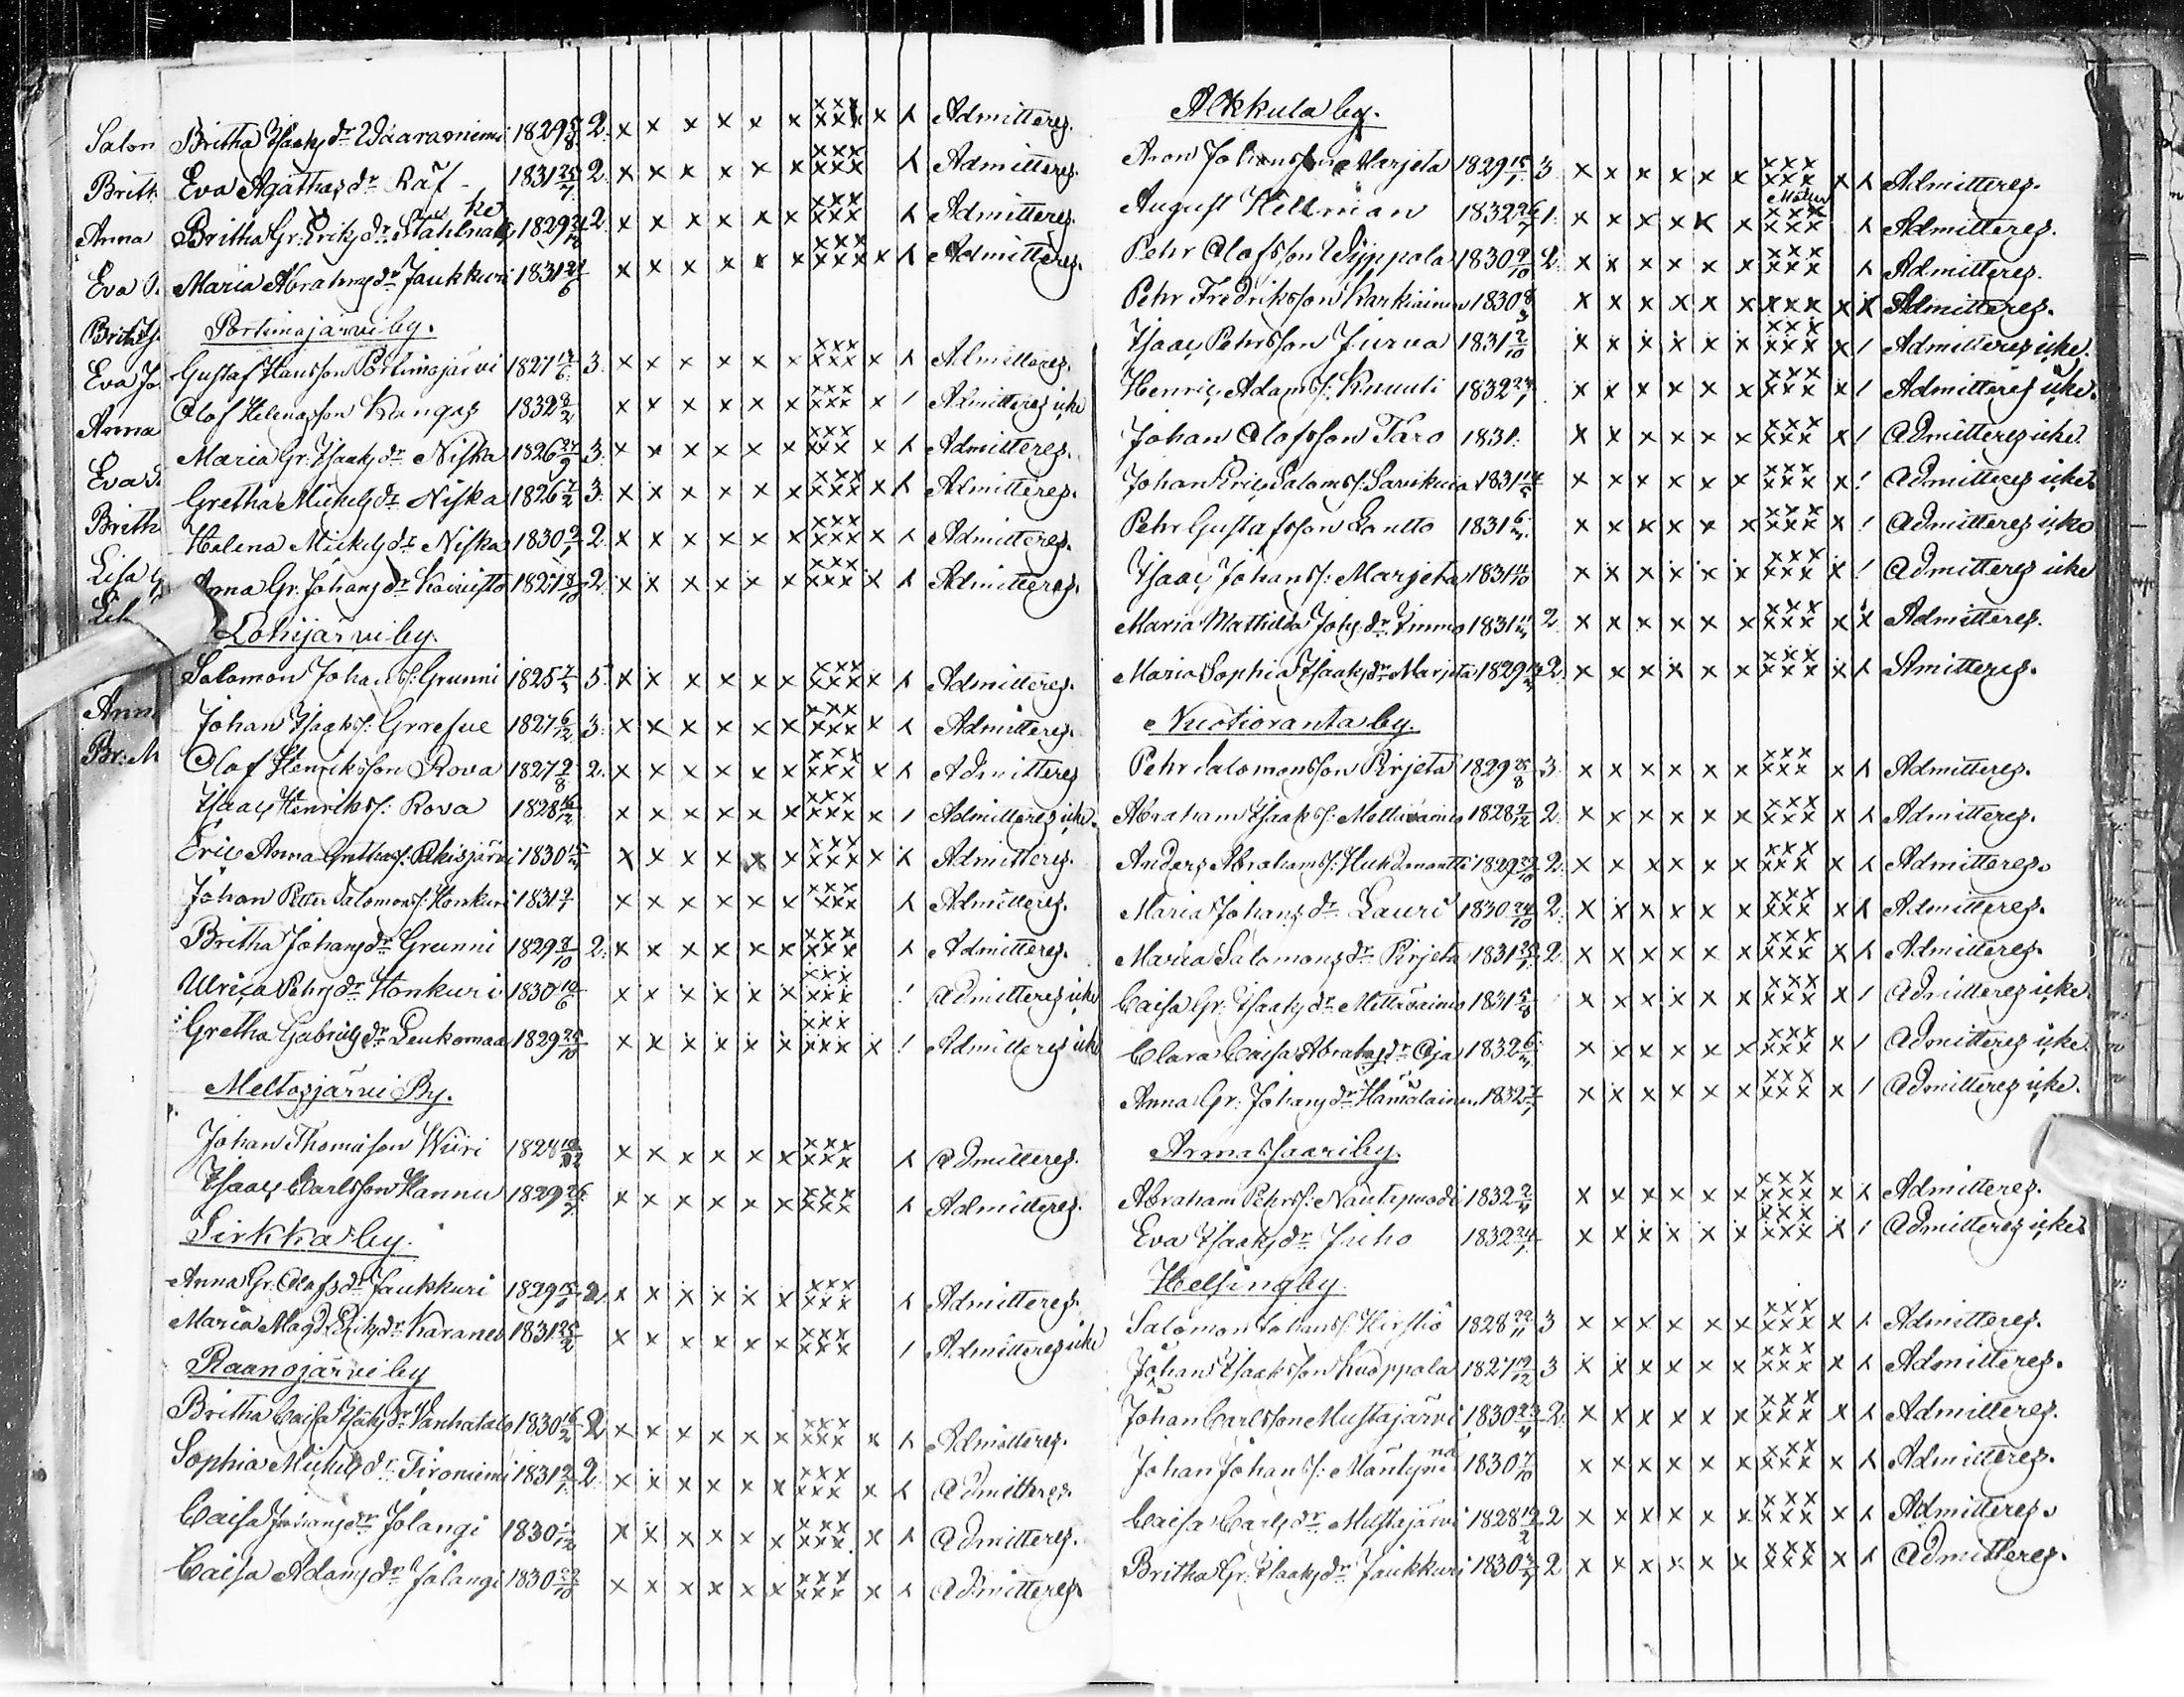 Britha Isaaks dr Waaraniemi 1829 5/8 2. x x x x x x xxx xxx x x Admitteres.
Eva Agathas dr Räf 1831 25/7 2. x x x x x x xxx xxx x Admitteres.
Britha Gr. Eriks dr 1829 2. x x x x x x xxx xxx x Admitteres.
Maria Abrahms dr Jaukkuri 1831 x x x x x x xxx xxx x x Admitteres.
Portimojärvi by.
Gustaf Hansson Portimojärvi 1827 3. x x x x x x xxx xxx x x Admitteres.
Olof Helenasson Kangas 1832 2/2 x x x x x x xxx xxx x / Admitteres icke
Maria Gr. Isaaks dr Niska 1826 27/9 3. x x x x x x xxx xxx x x Admitteres.
Gretha Mickels dr Niska 1826 3. x x x x x x xxx xxx x x Admitteres.
Helena Mickels dr Niska 1830 2. x x x x x x xxx xxx x x Admitteres.
Anna Gr. Johans dr Koivisto 1827 2. x x x x x x xxx xxx x x Admitteres.
Lohijärvi by.
Salomon Johans s: Grunni 1825 5. x x x x x x xxx xxx x x Admitteres.
Johan Isaaks s: 1827 6/12 3. x x x x x x xxx xxx x x Admitteres.
Olof Henriksson Rova 1827 2/8 2. x x x x x x xxx xxx x x Admitteres
Isaac Henriks s: Rova 1828 16/12 x x x x x x xxx xxx x / Admitteres icke.
Eric Anna Grethas s. 1830 x x x x x x xxx xxx x x Admitteres.
Johan Petter Salomons s: Honkuri 1831 2/1 x x x x x x xxx xxx x Admitteres.
Britha Johans dr Grunni 1829 8/10 2. x x x x x x xxx xxx x Admitteres.
Ulrica Pehrs dr Honkuri 1830 10/6 x x x x x x xxx xxx ! Admitteres icke
Gretha Gabriels dr Leukomaa 1829 25/10 x x x x x x xxx xxx x ! Admitteres icke
Meltosjärvi By.
Johan Thomasson Wiiri 1828 x x x x x x xxx xxx x Admitteres.
Isaac Carlsson Hannu 1829 x x x x x x xxx xxx x Admitteres.
Sirkka by.
Anna Gr. Olofs dr Jaukkuri 1829 2. x x x x x x xxx xxx x Admitteres.
Maria Magd. Eriks dr Karanes 1831 25/2 x x x x x x xxx xxx / Admitteres icke
Raanojärvi by
Britha Caisa Isaks dr Vanhatalo 1830 16/2 2 x x x x x x xxx xxx x x Admitteres.
Sophia Mickels dr Tironiemi 1831 2. x x x x x x xxx xxx x x Admitteres.
Caisa Johans dr Jolangi 1830 x x x x x x xxx xxx x x Admitteres.
Caisa Adams dr Jolangi 1830 22/10 x x x x x x xxx xxx x x Admitteres.
Alkkula by.
Aron Johansson Marjeta 1829 3 x x x x x x xxx xxx x x Admitteres.
August Hellman 1832 26/7 1. x x x x x x xxx xxx x Admitteres.
Pehr Olofsson Wyppola 1830 9/10 2. x x x x x x xxx xxx x Admitteres.
Pehr Fredriksson Karkiainen 1830 x x x x x x xxx x x Admitteres.
Isaac Pehrsson Jurva 1831 2/10 x x x x x x xxx xxx x / Admitteres icke.
Henric Adams s: Knuuti 1832 x x x x x x xxx xxx x / Admitteres icke.
Johan Olofsson Taro 1831. x x x x x x xxx xxx x / Admitteres icke.
Johan Eric Saloms s: Sarvikuia 1831 x x x x x x xxx xxx x ! Admitteres icke.
Pehr Gustafsson Lantto 1831 x x x x x x xxx xxx x ! Admitteres icke
Isaac Johans s: Marjeta 1831 x x x x x x xxx xxx x ! Admitteres icke
Maria Mathilda Johs. dr Timmo 1831 2. x x x x x x xxx xxx x x Admitteres.
Maria Sophia Isaaks dr Marjeta 1829 2. x x x x x x xxx xxx x x Amitteres.
Nuotioranta by.
Pehr Salomonsson Pirjeta 1829 25/8 3. x x x x x x xxx xxx x x Admitteres.
Abraham Isaaks s: Mettävainio 1828 2/12 2. x x x x x x xxx xxx x x Admitteres.
Anders Abrahams s: Huhdanmantti 1829 2. x x x x x x xxx xxx x x Admitteres.
Maria Johans dr Lauri 1830 24/10 2. x x x x x x xxx xxx x x Admitteres.
Maria Salomons dr Pirjeta 1831 2. x x x x x x xxx xxx x x Admitteres.
Caisa Gr. Isaaks dr Mettävainio 1831 5/8 x x x x x x xxx xxx x / Admitteres icke.
Clara Caisa Abrahs dr Oja 1832 x x x x x x xxx xxx x / Admitteres icke.
Anna Gr. Johans dr Hämäläinen 1832 x x x x x x xxx xxx x / Admitteres icke.
Armassaari by.
Abraham Pehrs s: Nautipuodi 1832 x x x x x x xxx xxx x x Admitteres.
Eva Isaaks dr Juho 1832 x x x x x x xxx xxx x / Admitteres icke
Helsingby.
Salomon Johans s: Hirstiö 1828 22/11 3 x x x x x x xxx xxx x x Admitteres.
Johan Isaaksson Kuoppala 1827 12/12 3 x x x x x x xxx xxx x x Admitteres.
Johan Carlsson Mustajärvi 1830 2. x x x x x x xxx xxx x x Admitteres.
Johan Johans s: 1830 x x x x x x xxx xxx x x Admitteres.
Caisa Carls dr Mustajärvi 1828 12/2 2 x x x x x x xxx xxx x x Admitteres.
Britha Gr. Isaaks dr Jaukkuri 1830 2 x x x x x x xxx xxx x x Admitteres.